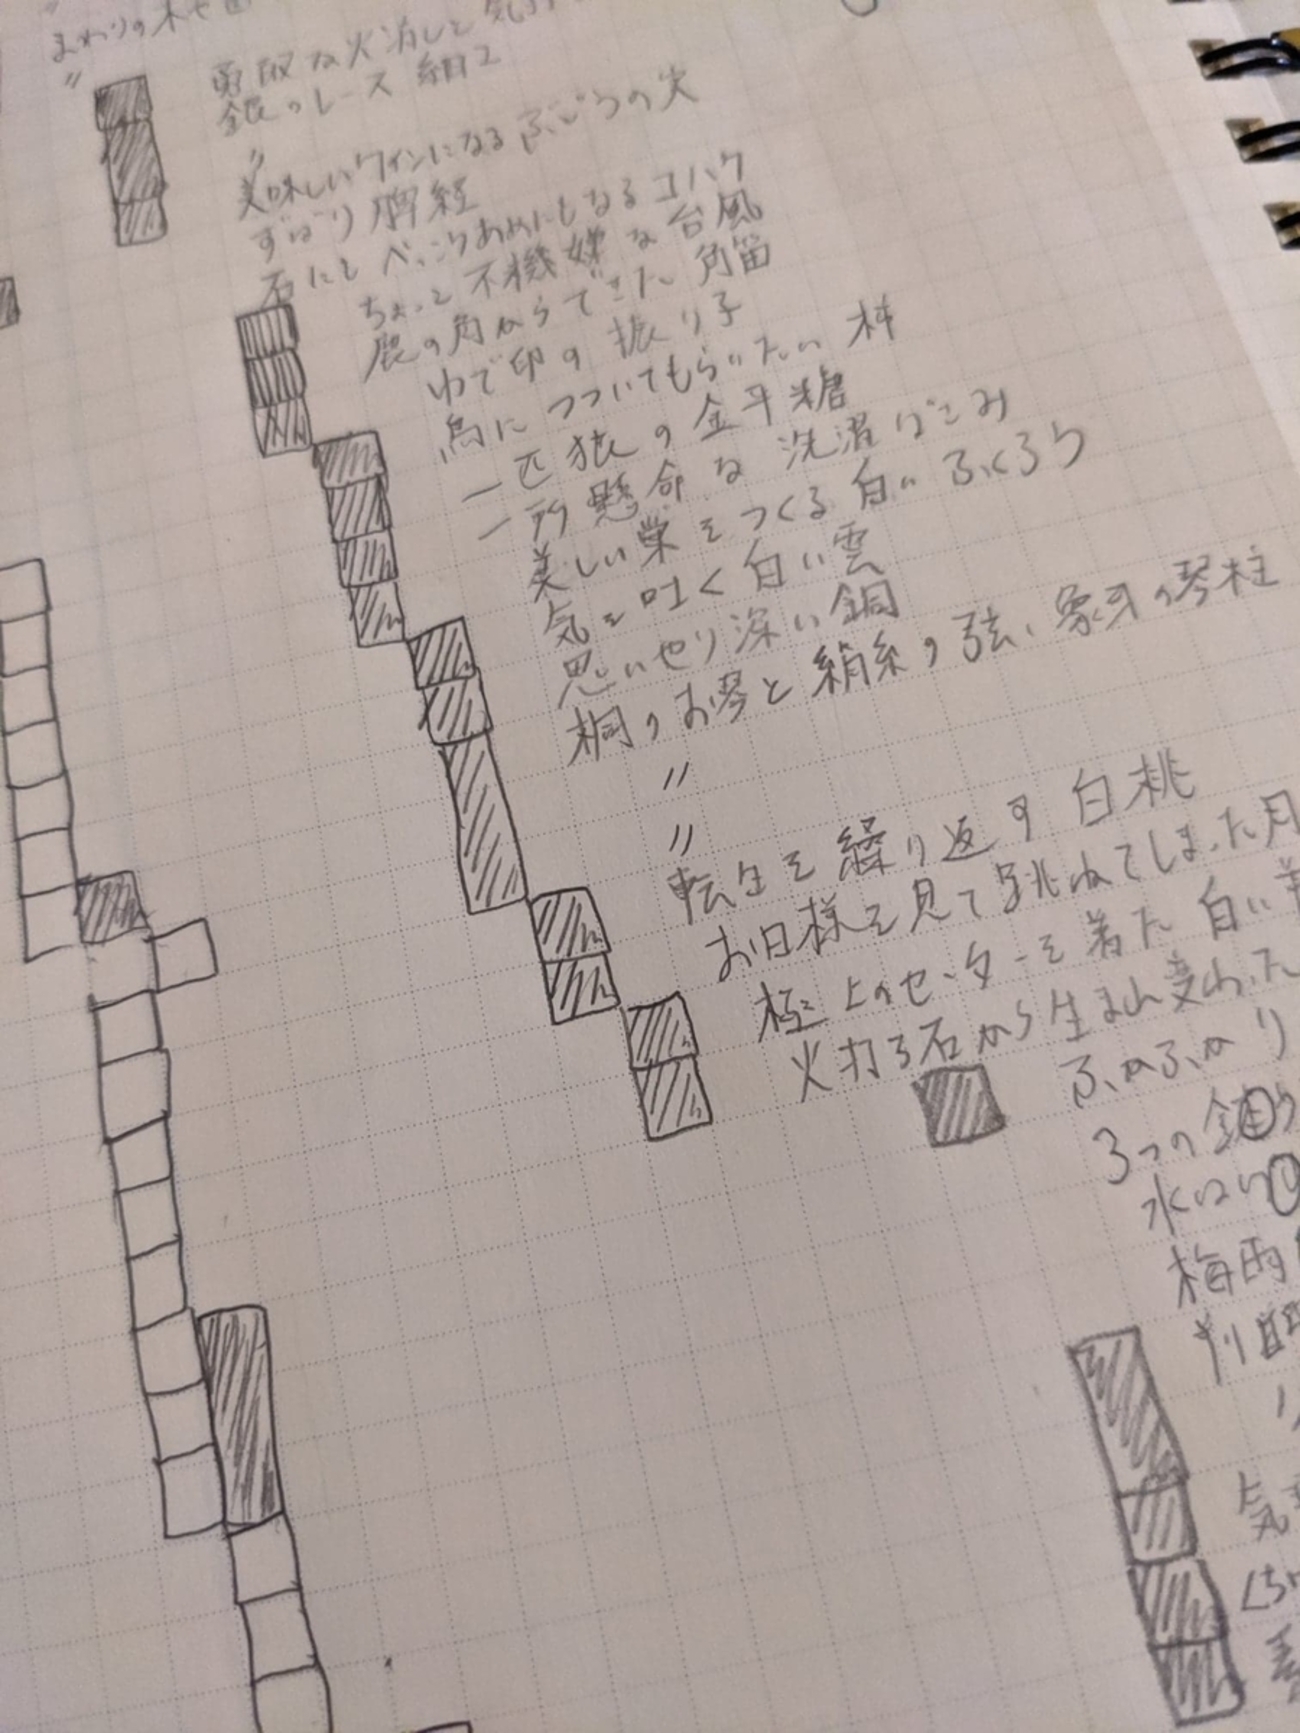 まわりの木や
〃
勇敢な火消しと気
銀のレース細工
〃
美味しいワインになるぶどうの火
ずばり 脾経
石にも べっこうあめにもなるコハク
ちょっと不機嫌な台風
鹿の角からできた角笛
ゆで卵の振り子
鳥につついてもらいたい
一匹狼の金平糖
一所懸命な洗濯ばさみ
美しい巣をつくる白いふくろう
気を吐く白い雲
思いやり深い銅
桐のお琴と絹糸の弦、象牙の琴柱
〃
〃
転生を繰り返す白桃
お日様を見て跳ねてしまった月
極上のセーターを着た白い羊
火打ち石から生まれ変わった
ふかふか
3つの
水
梅雨
判
気
くち